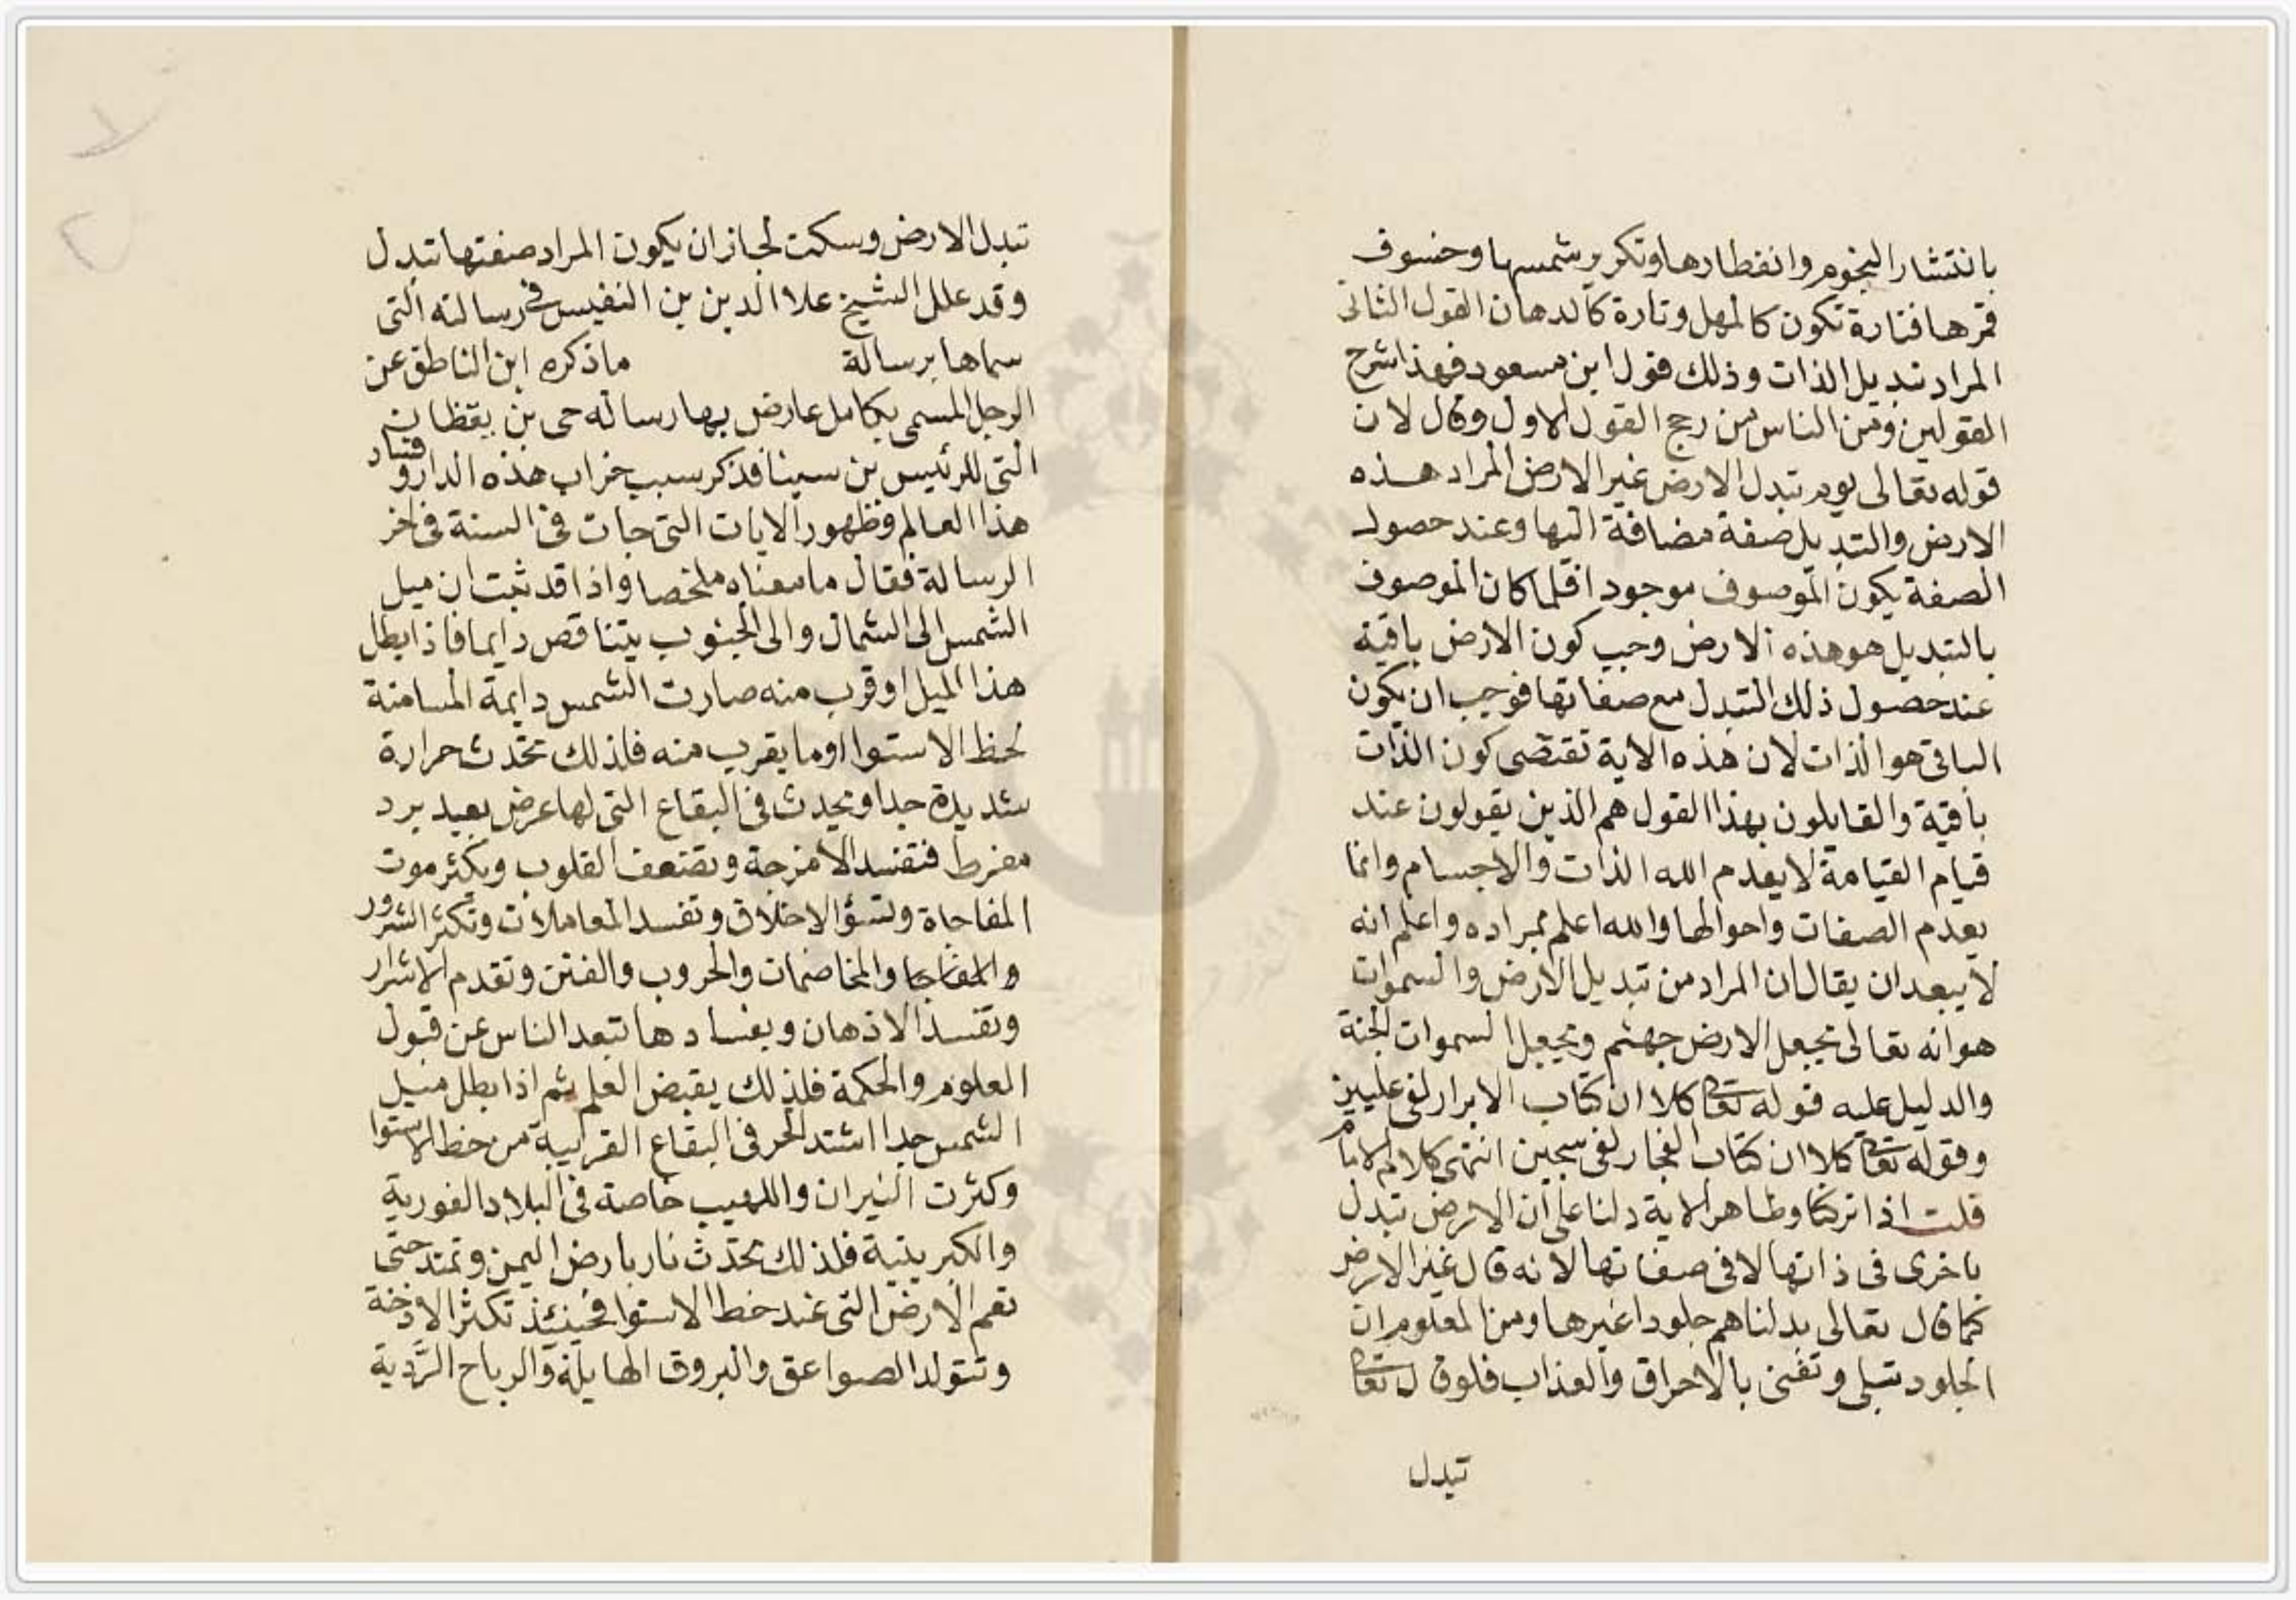 بانتشار النجوم وانفطارها وتكوير شمسها وخسوف
قمرها فتارة تكون كالمهل وتارة كالدهان القول الثاني
المراد تبديل الذات وذلك قول ابن مسعود فهذا شرح
القولين ومن الناس من رجح القول الاول وقال لان
قوله تعالى يوم تبدل الارض غير الارض المراد هذه
الارض والتبديل صفة مضافة اليها وعند حصول
الصفة يكون الموصوف موجودا فلما كان الموصوف
بالتبديل هو هذه الارض وجب كون الارض باقية
عند حصول ذلك التبدل مع صفاتها فوجب ان يكون
الباقي هو الذات لان هذه الاية تقتضى كون الذات
باقية والقايلون بهذا القول هم الذين يقولون عند
قيام القيامة لا يعدم الله الذات والاجسام وانما
يعدم الصفات واحوالها والله اعلم بمراده واعلم انه
لا يبعد ان يقال ان المراد من تبديل الارض والسموات
هو انه تعالى يجعل الارض جهنم ويجعل السموات الجنة
والدليل عليه قوله تعا كلا ان كتاب الابرار لفي عليين
وقوله تعا كلا ان كتاب الفجار لفي سجين انتهى كلام الامام
قلت اذا تركنا وظاهر الاية دلنا على ان الارض تبدل
باخرى في ذاتها لا في صفاتها لانه قال غير الارض
كما قال تعالى بدلناهم جلودا غيرها ومن المعلوم ان
الجلود تبلى وتفنى بالاحراق والعذاب فلو قال تعا
تبدل
تبدل الارض وسكت لجاز ان يكون المراد صفتها تبدل
وقد علل الشيخ علا الدين بن النفيس في رسالته التي
سماها برسالة ماذكره ابن الناطق عن
الرجل المسمى بكامل عارض بها رسالة حى بن يقظان
التي للرئيس بن سينا فذكر سبب خراب هذه الدار وفساد
هذا العالم وظهور الايات التي جات في السنة في اخر
الرسالة فقال ما معناه ملخصا واذا قد ثبت ان ميل
الشمس الى الشمال والى الجنوب يتناقص دايما فاذا بطل
هذا الميل او قرب منه صارت الشمس دايمة المسامتة
لخط الاستوا او ما يقرب منه فلذلك تحدث حرارة
شديدة جدا ويحدث في البقاع التي لها عرض بعيد برد
مفرط فتفسد الامزجة وتضعف القلوب ويكثر موت
المفاجاة وتسؤ الاخلاق وتفسد المعاملات وتكثر الشرور
والمفاجا والمخاصمات والحروب والفتن وتقدم الاشرار
وتفسد الاذهان وبفسادها تبعد الناس عن قبول
العلوم والحكمة فلذلك يقبض العلم ثم اذا بطل ميل
الشمس جدا اشتد الحر في البقاع القريبة من خط الاستوا
وكثرت النيران واللهيب خاصة في البلاد الغورية
والكبريتية فلذلك تحدث نار بارض اليمن وتمتد حتى
تعم الارض التي عند خط الاستوا فحينئذ تكثر الادخنة
وتتولد الصواعق والبروق الهايلة والرياح الردية